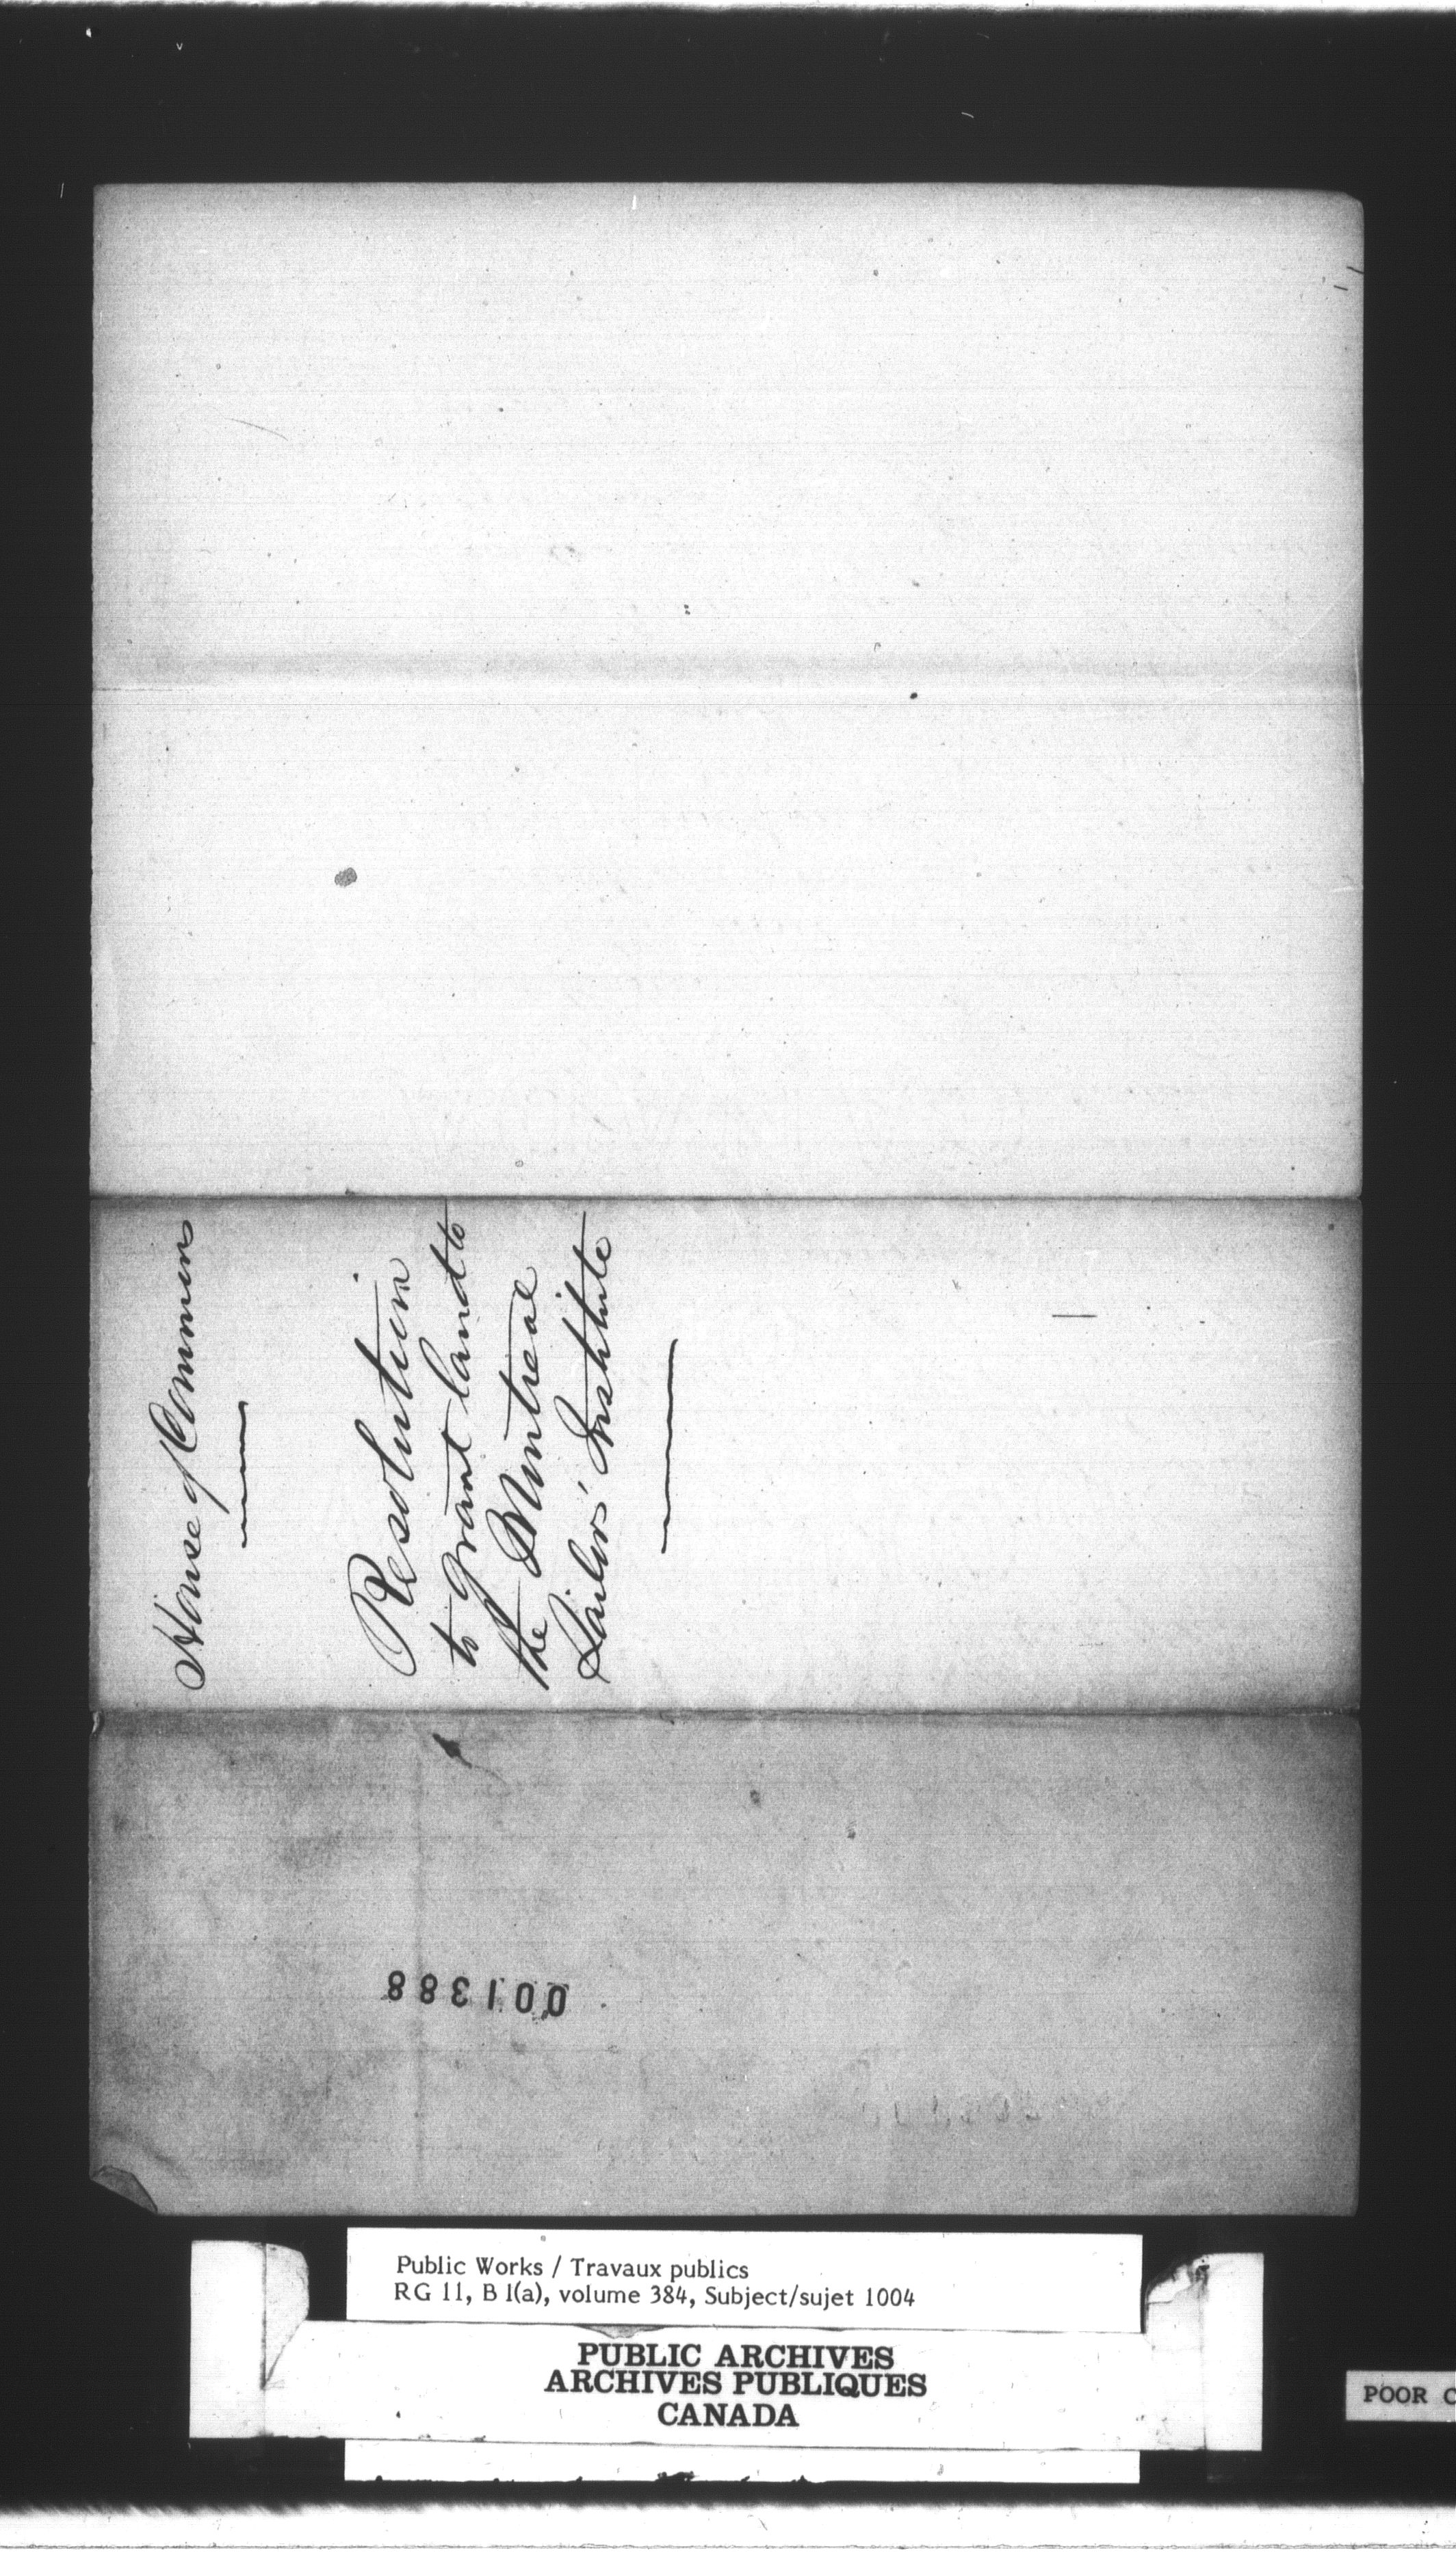 House of Commons
Resolution
to grant land to
the Montreal
Sailors' Institute
001388
Public Works / Travaux publics
RG 11, B 1(a), volume 384, Subject/sujet 1004
PUBLIC ARCHIVES
ARCHIVES PUBLIQUES
CANADA
POOR C